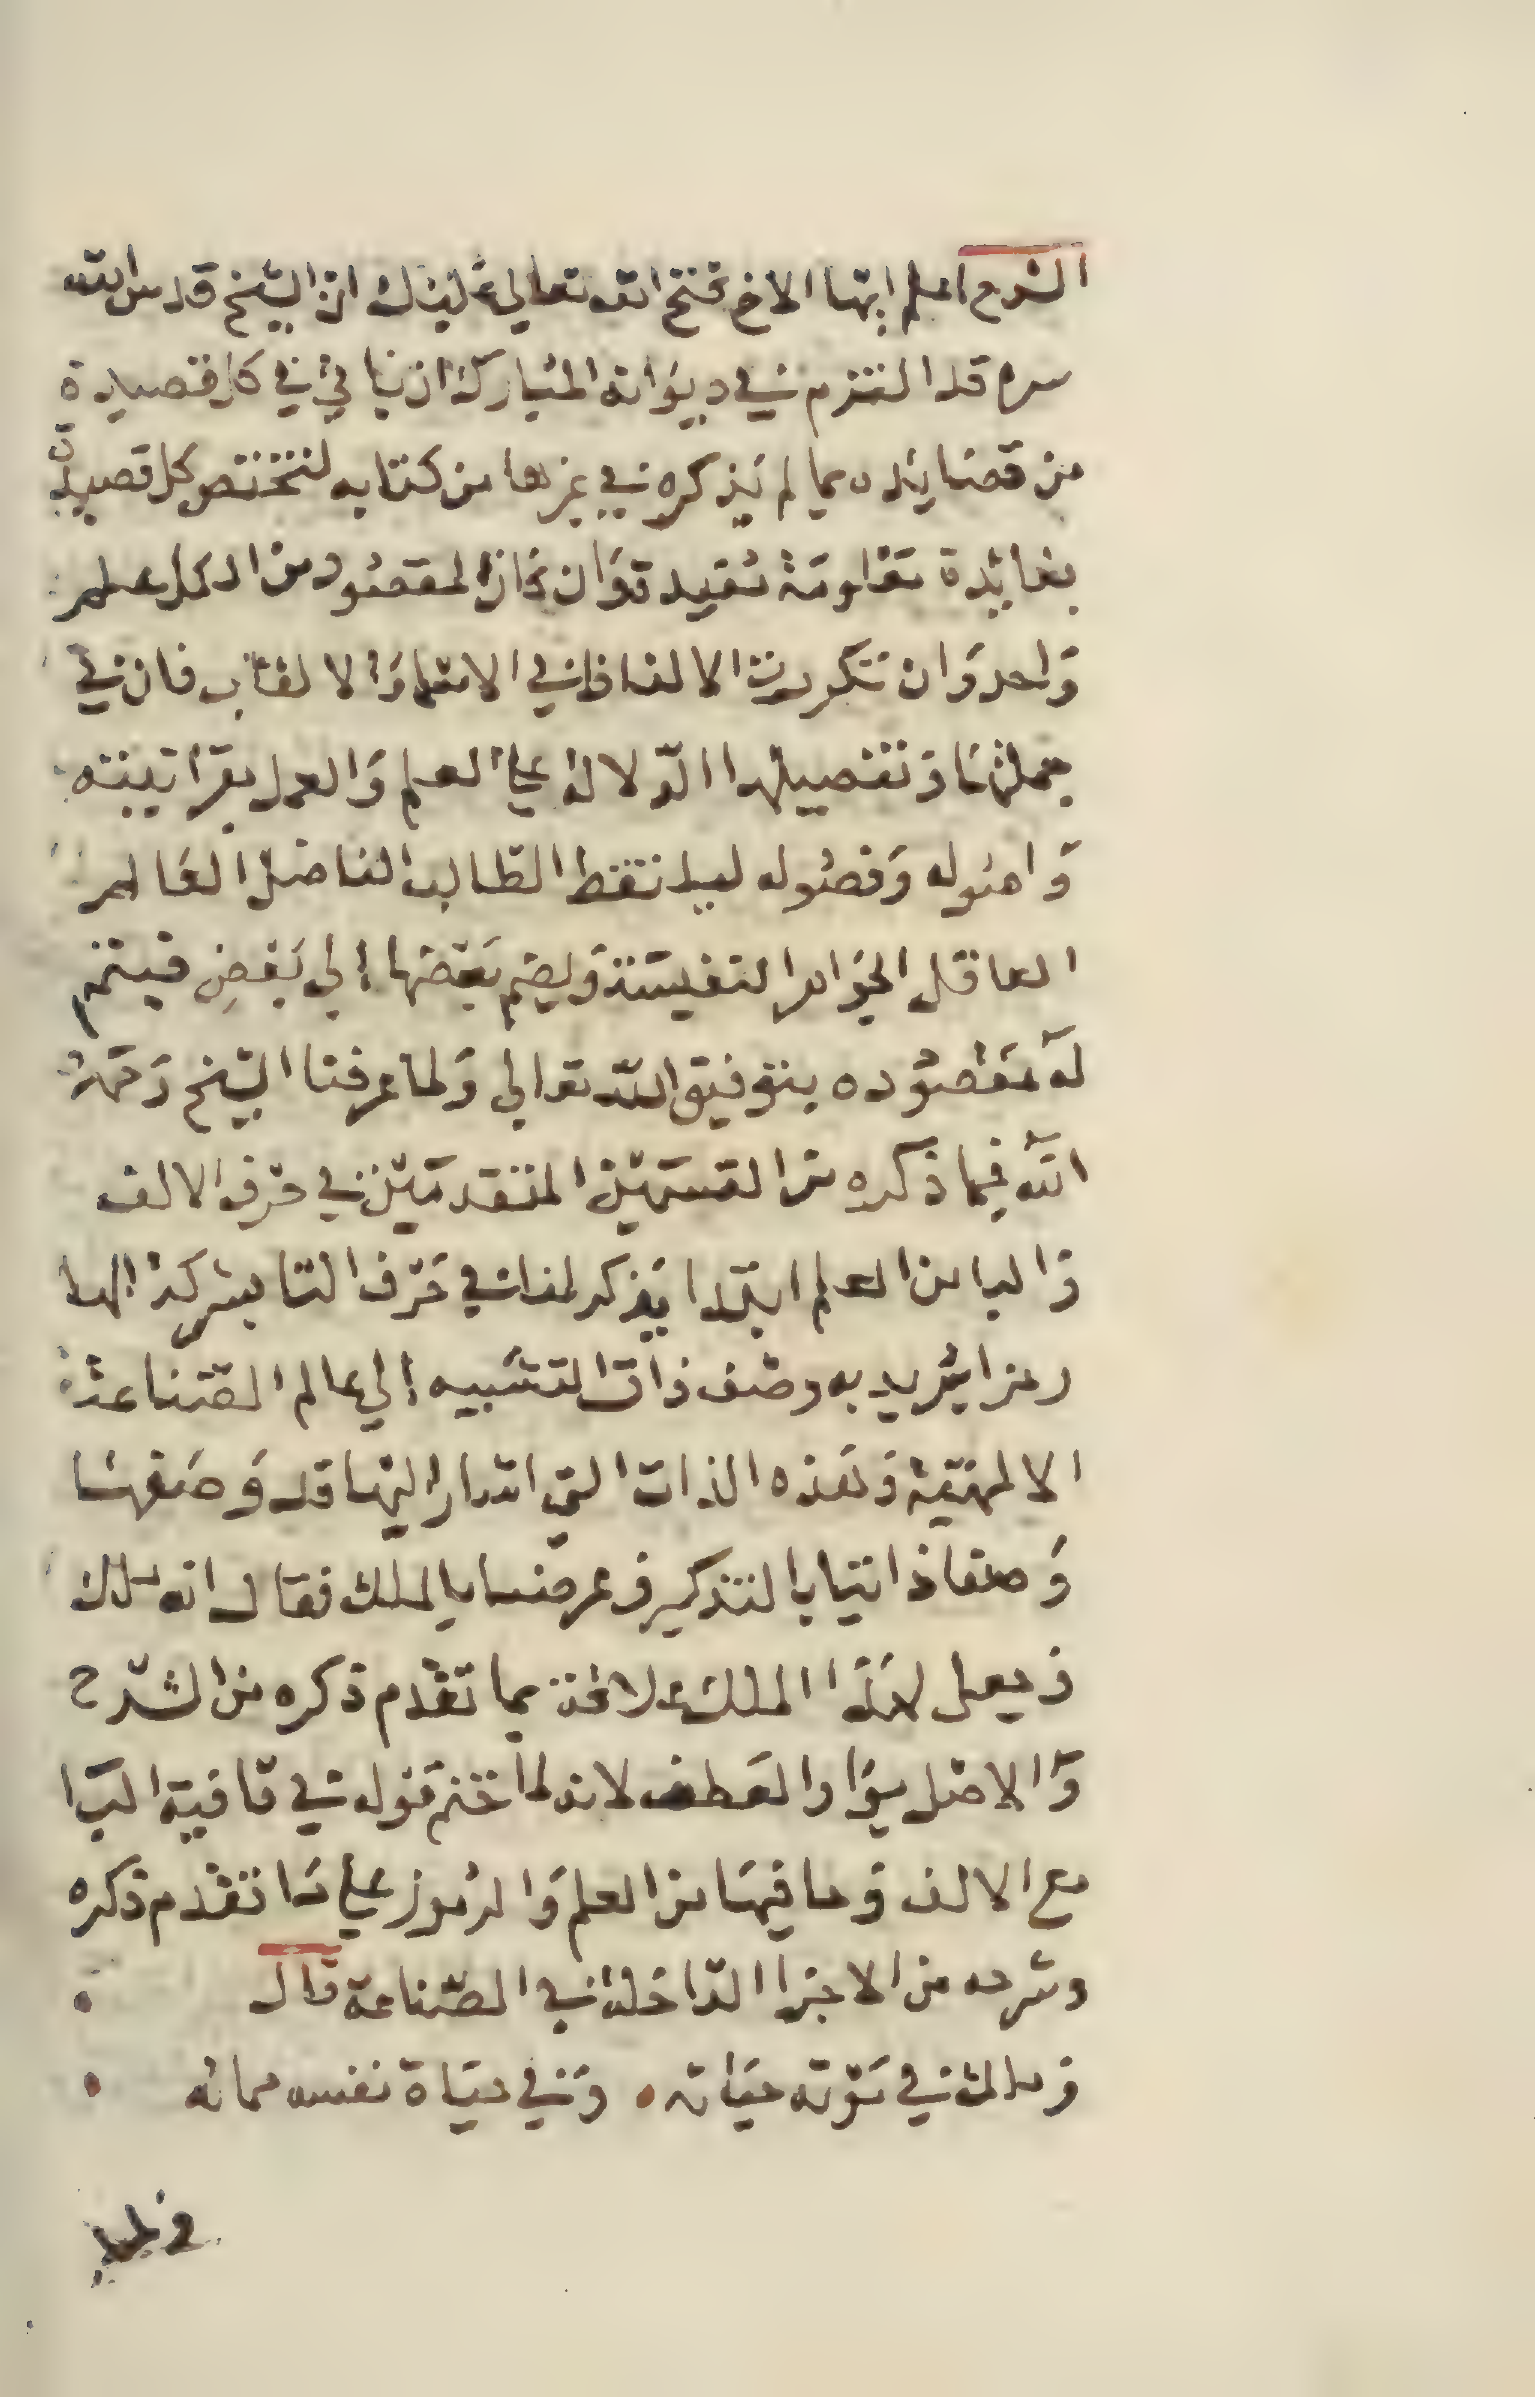 الشرح اعلم ايها الاخ فتح الله تعالى علينا ان الشيخ قدس الله
سره قد التزم في ديوانه المبارك ان يأتي في كل قصيدة
من قصائده بما لم يذكره في غيرها من كتابه لتختص كل قصيدة
بفائدة معلومة تفيد وان كان المقصود من الكل علم
واحد وان تكررت الالفاظ في الاسما والالقاب فان في
جملتها وتفصيلها الدلالة على العلم والعمل بقرائنه
واصوله وفصوله ليلتقط الطالب الفاضل العالم
العاقل الجواهر النفيسة ويضم بعضها الى بعض فيتم
له مقصوده بتوفيق الله تعالى ولما عرفنا الشيخ رحمه
الله فيما ذكره من القسمين المتقدمين في حرف الالف
والبا من العلم ابتدا يذكر لنا في حرف التا بشركة الها
رمزا يريد به وصف ذات التشبيه الى عالم الصناعة
الالهية وهذه الذات التي اشار اليها قد وصفها
وصفا ذاتيا بالتذكير وعرضا بالملك فقال انه ملك
وجعل لهذا الملك علاقة بما تقدم ذكره من الشرح
والاصل بواو العطف لانه لما ختم قوله في قافية البا
مع الالف وما فيها من العلم والرموز على ما تقدم ذكره
وشرحه من الاجزا الداخلة في الصناعة قال
وملك في موته حياته • وفي حياة نفسه مماته